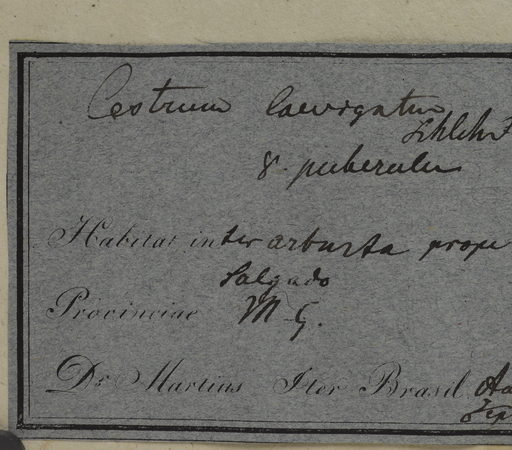 Cestrum laevigatum
Schlcht
γ. puberulu
Habitat inter arbusta prope
Salgado
Provinciae M G.
Dr Martius Iter Brasil. Au
Sep